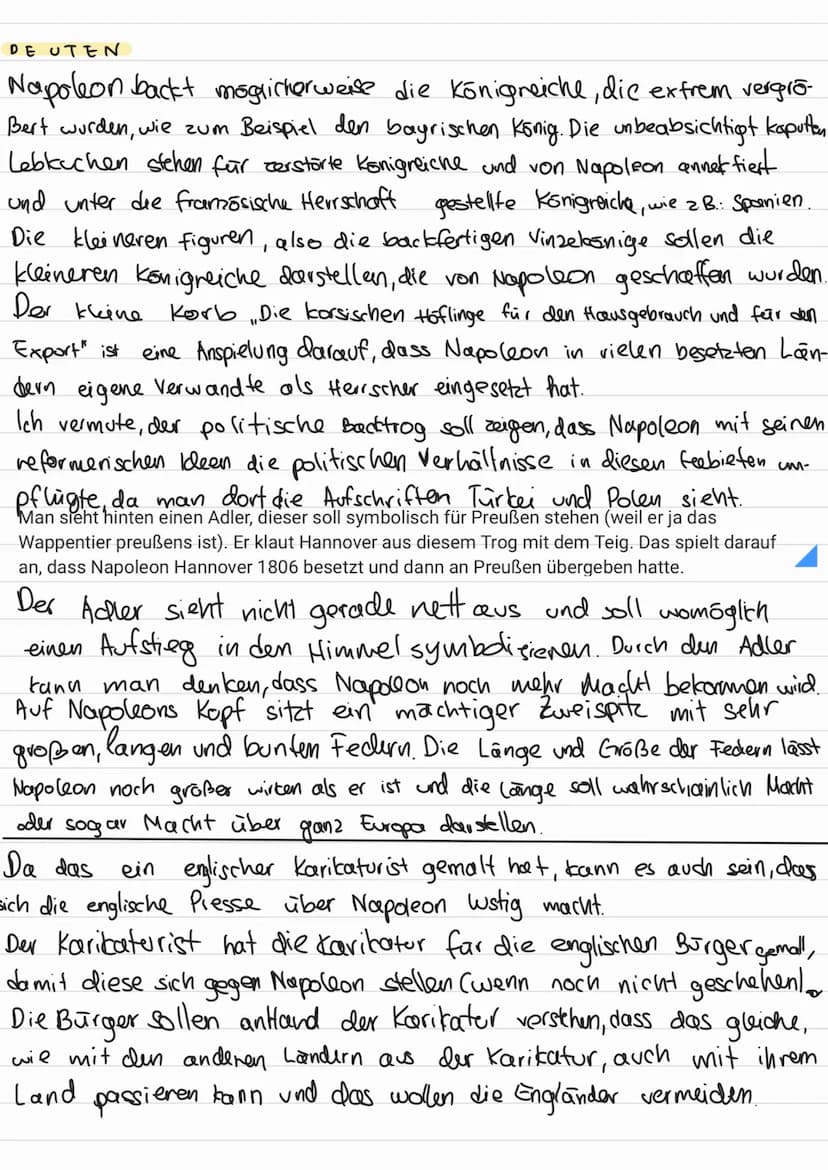 DEUTEN
Napoleon backt möglicherweise die Königreiche, die extrem vergrö-
ßert wurden, wie zum Beispiel den bayrischen König. Die unbeabsichtigt kaputten
Lebkuchen stehen für zerstörte Königreiche und von Napoleon annektiert
und unter die französische Herrschaft gestellte Königreiche, wie z.B.: Spanien.
Die kleineren Figuren, also die backfertigen Vinzekönige sollen die
kleineren Königreiche darstellen, die von Napoleon geschaffen wurden.
Der kleine Korb „Die korsischen Höflinge für den Hausgebrauch und für den
Export" ist eine Anspielung darauf, dass Napoleon in vielen besetzten Län-
dern eigene Verwandte als Herrscher eingesetzt hat.
Ich vermute, der politische Backtrog soll zeigen, dass Napoleon mit seinen
reformerischen Ideen die politischen Verhältnisse in diesen Gebieten um-
pflügte, da man dort die Aufschriften Türkei und Polen sieht.
Man sieht hinten einen Adler, dieser soll symbolisch für Preußen stehen (weil er ja das
Wappentier preußens ist). Er klaut Hannover aus diesem Trog mit dem Teig. Das spielt darauf
an, dass Napoleon Hannover 1806 besetzt und dann an Preußen übergeben hatte.
Der Adler sieht nicht gerade nett aus und soll womöglich
einen Aufstieg in den Himmel symbolisieren. Durch den Adler
kann man denken, dass Napoleon noch mehr Macht bekommen wird.
Auf Napoleons Kopf sitzt ein mächtiger Zweispitz mit sehr
großen, langen und bunten Federn. Die Länge und Größe der Federn lässt
Napoleon noch größer wirken als er ist und die Länge soll wahrscheinlich Macht
oder sogar Macht über ganz Europa darstellen.
Da das ein englischer Karikaturist gemalt hat, kann es auch sein, dass
sich die englische Presse über Napoleon lustig macht.
Der Karikaturist hat die Karikatur für die englischen Bürger gemalt,
damit diese sich gegen Napoleon stellen (wenn noch nicht geschehen).
Die Bürger sollen anhand der Karikatur verstehen, dass das gleiche,
wie mit den anderen Ländern aus der Karikatur, auch mit ihrem
Land passieren kann und das wollen die Engländer vermeiden.